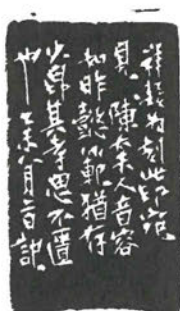 祥为刻此印宛
見陳太夫人音容
如昨懿範猶存
少昂其孝思不匱
也乙未八月二日記